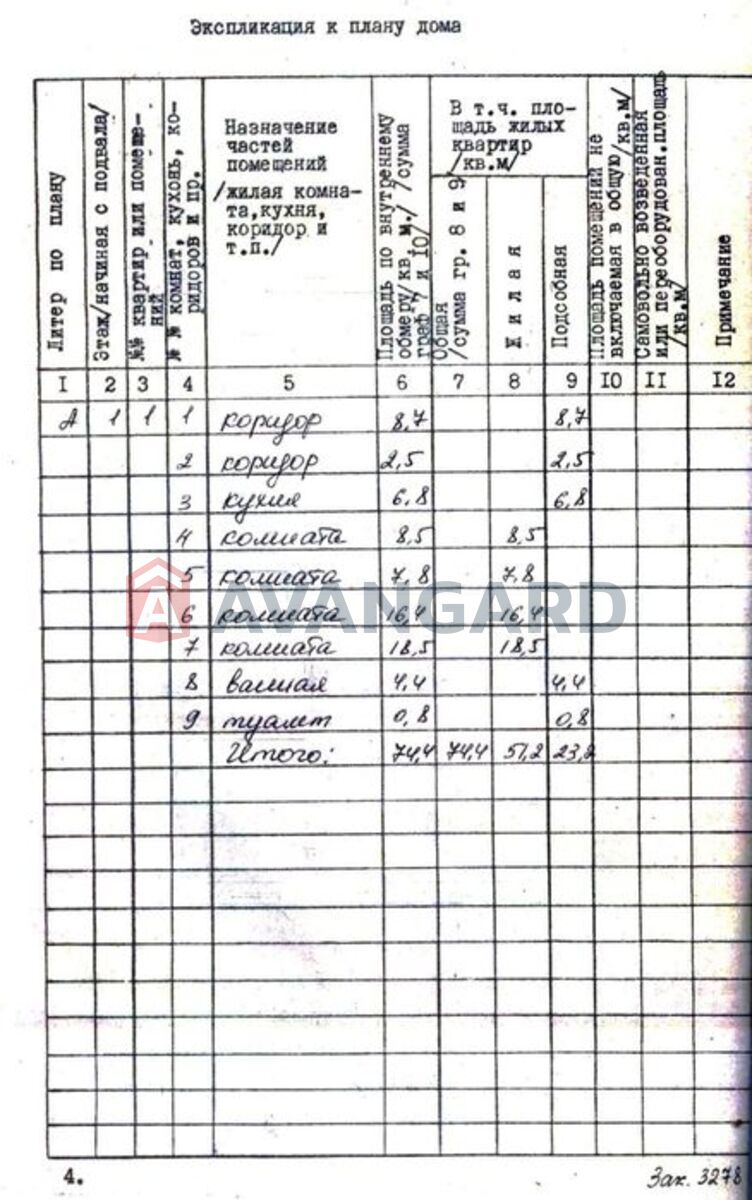 Экспликация к плану дома
Литер по плану
Этаж/начиная с подвала/
№№ квартир или помеще-
ний
№ № комнат, кухонь, ко-
ридоров и пр.
Назначение
частей
помещений
/жилая комна-
та, кухня,
коридор и
т.п./
Площадь по внутреннему
обмеру/кв. м./ /сумма
граф 7 и 10/
В т.ч. пло-
щадь жилых
квартир
/кв.м/
Общая
/сумма гр. 8 и 9
Жилая
Подсобная
Площадь помещений не
включаемая в общую/кв.м/
Самовольно возведенная
или переоборудован.площадь
/кв.м/
Примечание
I 2 3 4 5 6 7 8 9 I0 II I2
А 1 1 1 коридор 8,7 8,7
2 коридор 2,5 2,5
3 кухня 6,8 6,8
4 комната 8,5 8,5
5 комната 7,8 7,8
6 комната 16,4 16,4
7 комната 18,5 18,5
8 ванная 4,4 4,4
9 туалет 0,8 0,8
Итого: 74,4 74,4 51,2 23,2
AVANGARD
4.
Зак. 3278